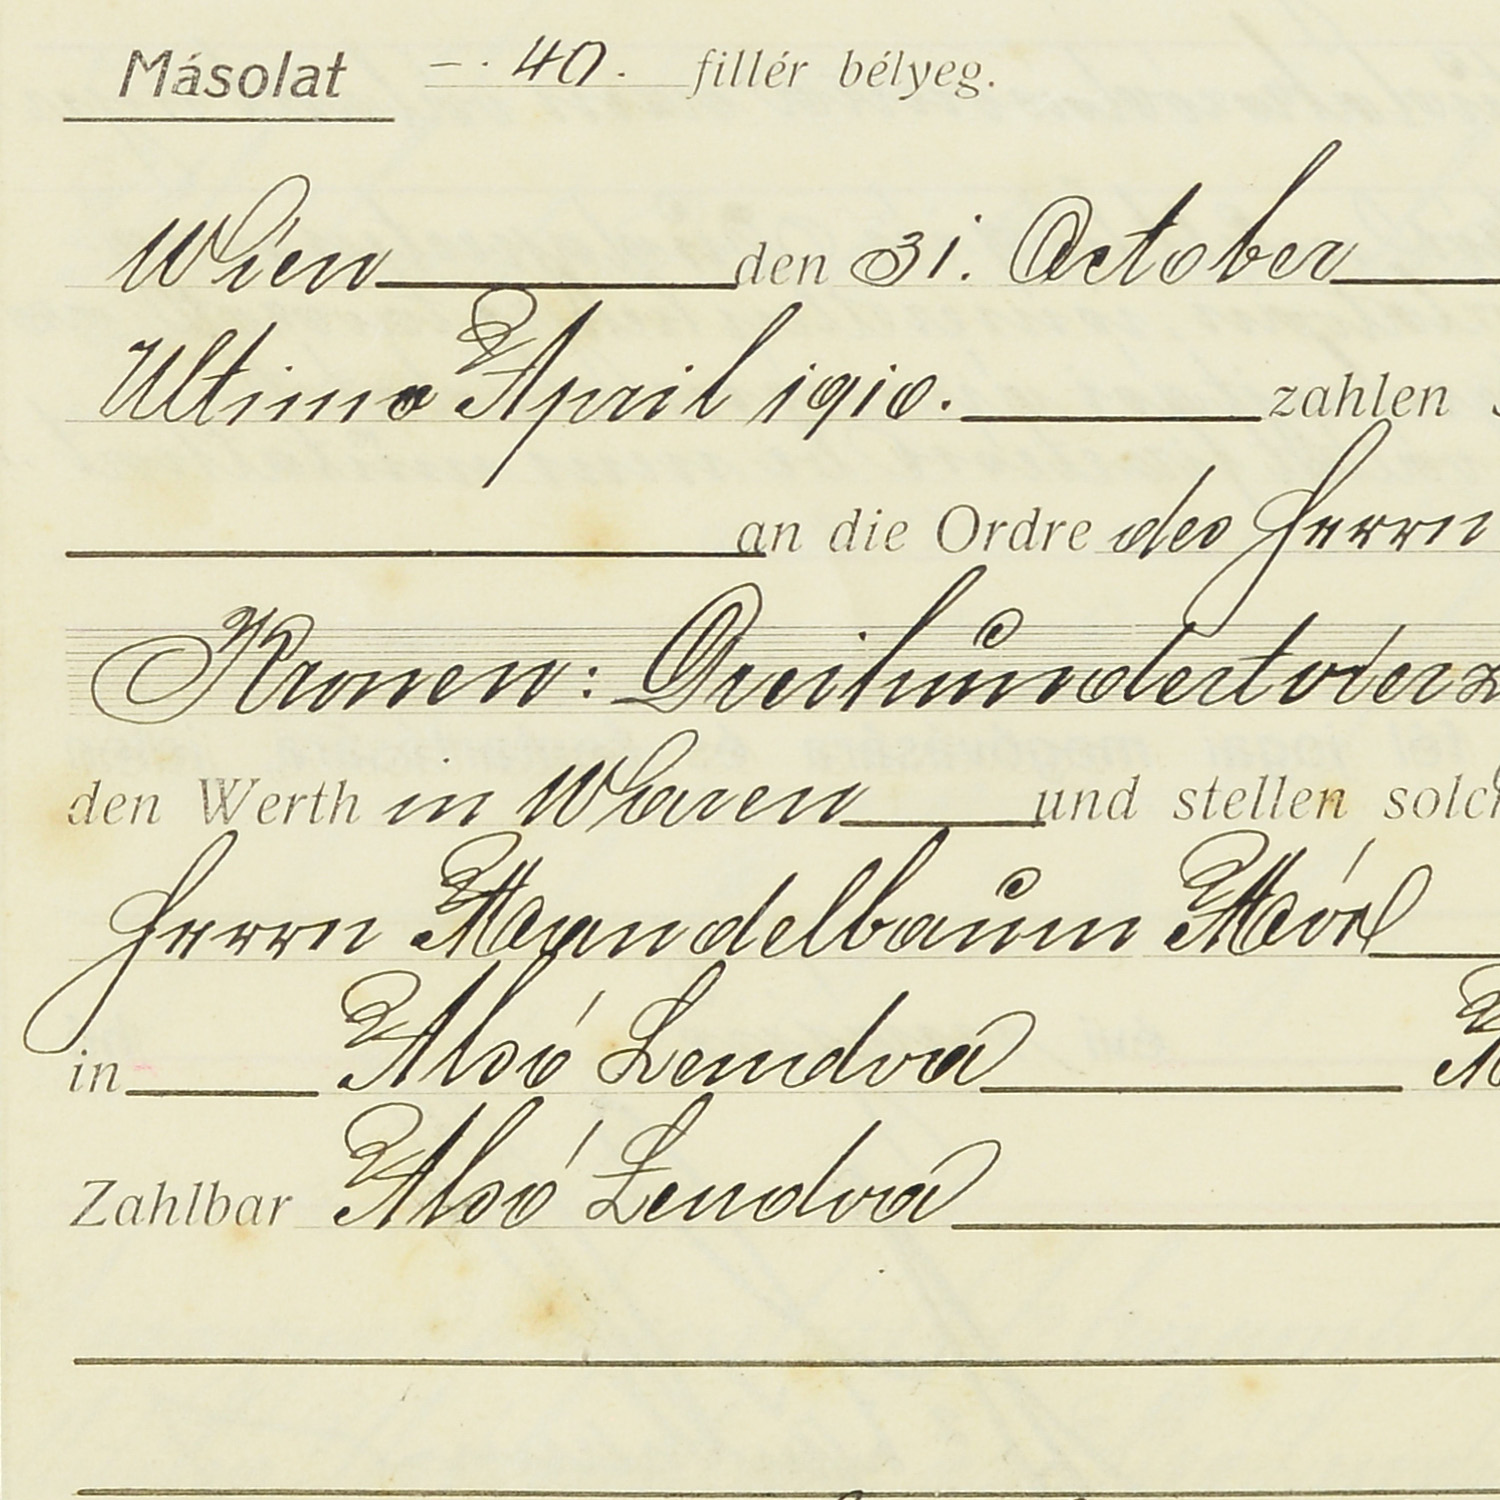 Másolat –. 40. fillér bélyeg.
Wien den 31. October
Ultimo April 1910. zahlen
an die Ordre des Herrn
Kronen: Dreihundertvierz
den Werth in Waren und stellen solch
Herrn Mandelbaum Mór
in Alsó Lendva
Zahlbar Alsó Lendva